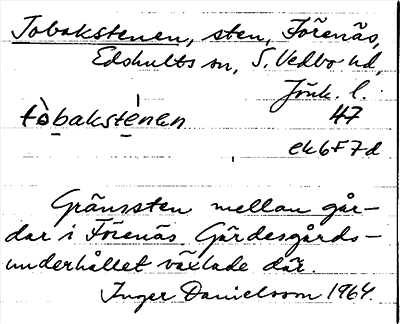 Tobakstenen, sten, Förenäs,
Edshults sn, S. Vedbo hd,
Jönk. l.
tò̲bakste̲̍nen 47
ek6F7d
Gränssten mellan går-
dar i Förenäs. Gärdesgårds-
underhållet växlade där.
Inger Danielsson 1964.